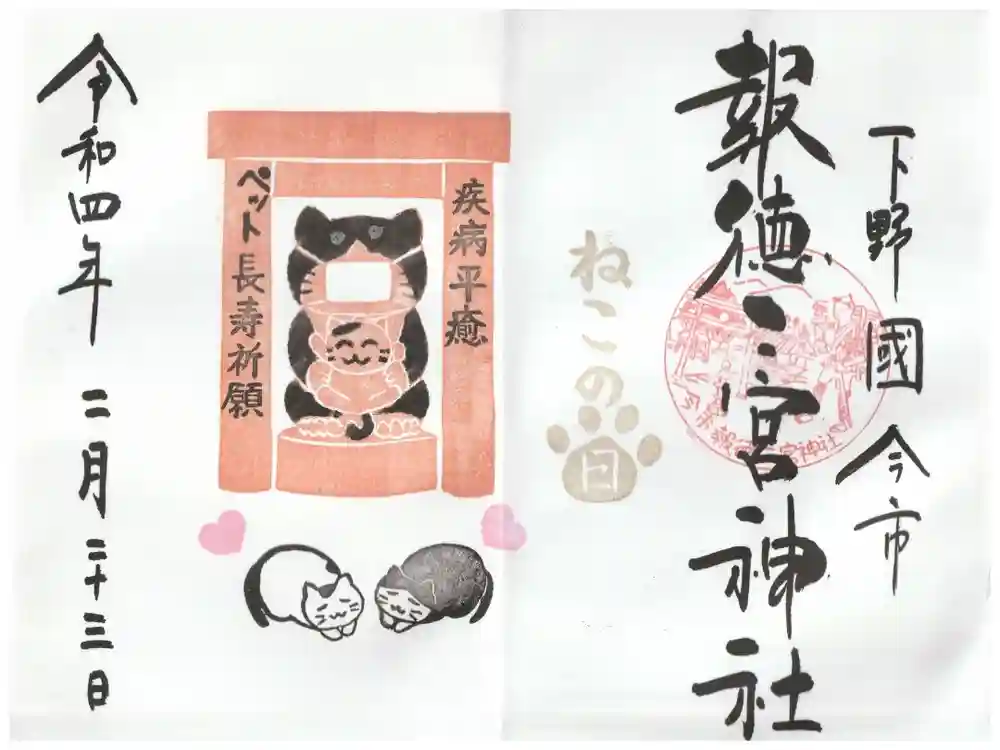 下野國今市
報徳二宮神社
今市 報徳二宮神社
ねこの日
疾病平癒
ペット長寿祈願
令和四年 二月二十三日